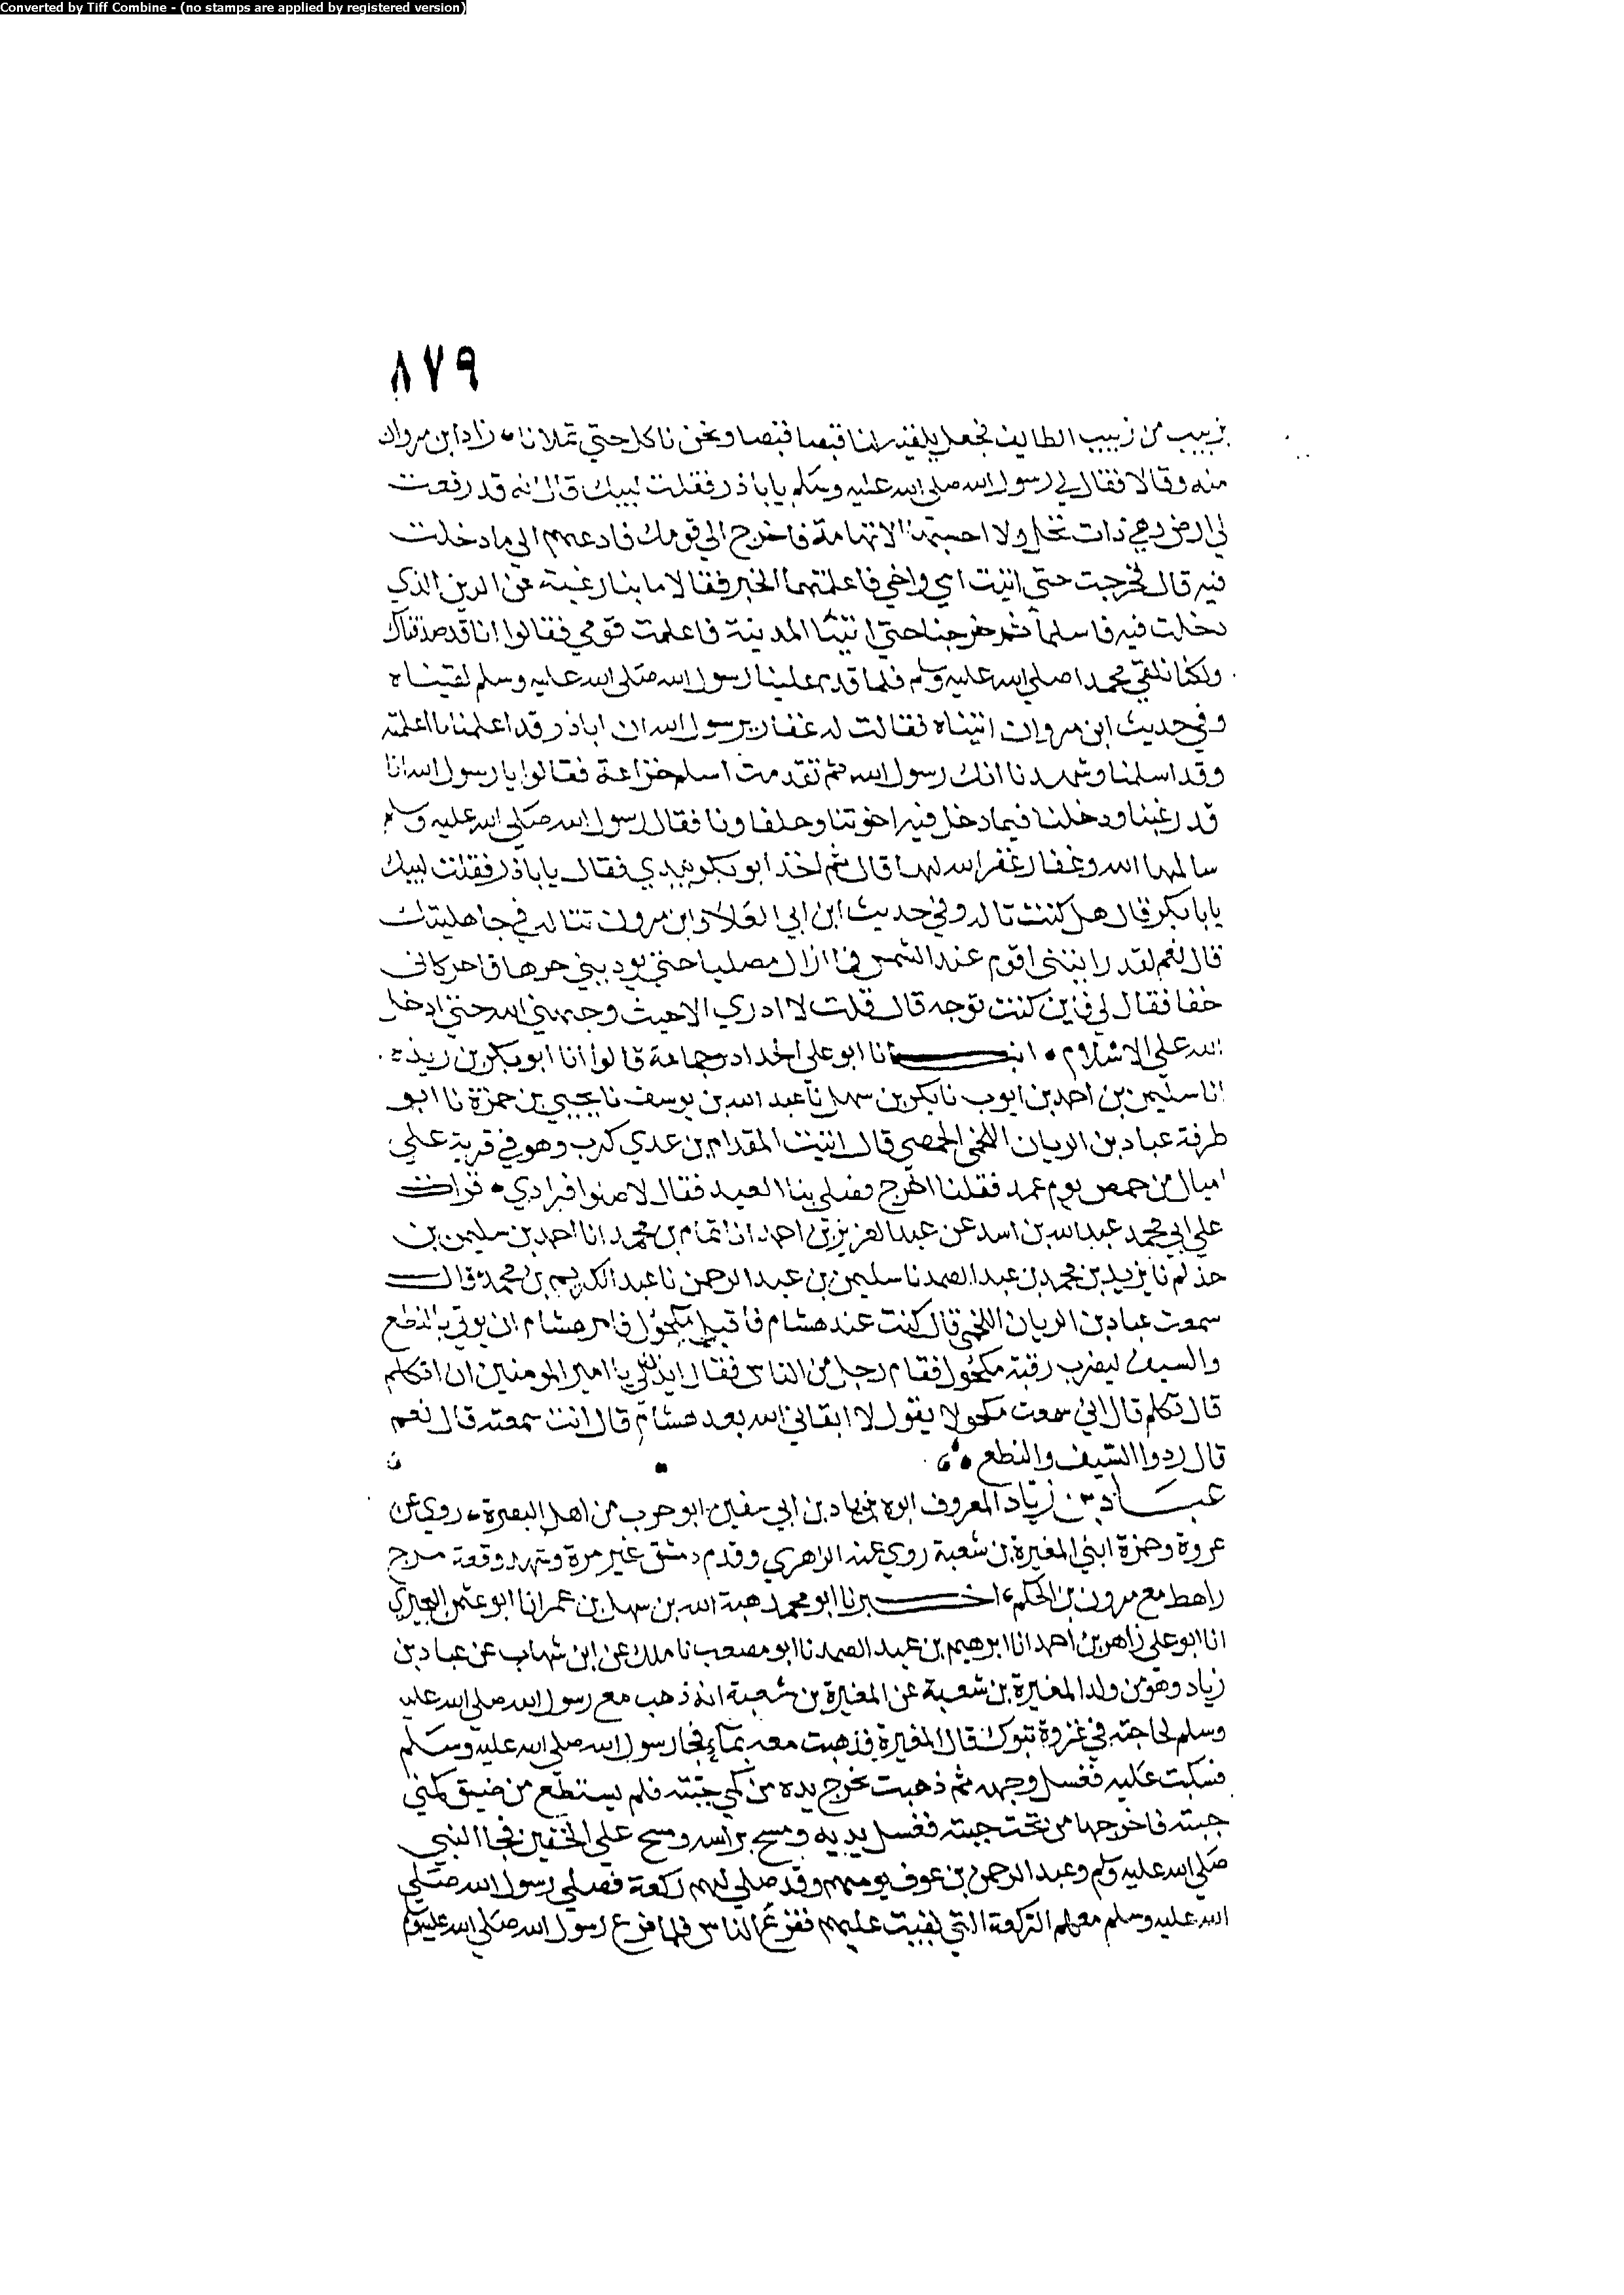 Converted by Tiff Combine - (no stamps are applied by registered version)
٨٧٩
بزبيب من زبيب الطايف فجعل يلقيه لنا قبصا قبصا ونحن ناكل حتي تملانا زاد ابن مروان
منه وقالا فقال لي رسول الله صلى الله عليه وسلم يابا ذر فقلت لبيك قال انه قد رفعت
لي ارض وهي ذات نخل ولا احسبها الا تهامة فاخرج الي قومك فادعهم الي ما دخلت
فيه قال فخرجت حتي اتيت امي واخي فاعلمتهما الخبر فقالا ما بنا رغبة عن الدين الذي
دخلت فيه فاسلما ثم خرجنا حتي اتينا المدينة فاعلمت قومي فقالوا انا قد صدقناك
ولكنا نلقي محمدا صلي الله عليه وسلم فلما قدم علينا رسول الله صلى الله عليه وسلم لقيناه
وفي حديث ابن مروان اتيناه فقالت له غفار يرسول الله ان اباذر قد اعلمنا ما اعلمته
وقد اسلمنا وشهدنا انك رسول الله ثم تقدمت اسلم خزاعة فقالوا يا رسول الله انا
قد رغبنا ودخلنا فيما دخل فيه اخوتنا وحلفاونا فقال رسول الله صلى الله عليه وسلم
سالمها الله وغفار غفر الله لها قال ثم اخذ ابو بكر بيدي فقال يابا ذر فقلت لبيك
يابا بكر قال هل كنت تاله وفي حديث ابن ابي العلا وابن مرون تتاله في جاهليتك
قال نعم لقد رايتني اقوم عند الشمس فما ازال مصليا حتي يوذيني حرها فاخر كاني
خفا فقال لي فاين كنت توجه قال قلت لا ادري الا حيث وجهني الله حتي ادخل
الله علي الاسلام انبانا ابو علي الحداد وجماعة قالوا انا ابو بكر بن ريذه
انا سليمن بن احمد بن ايوب نا بكر بن سهل نا عبد الله بن يوسف نا يحيي بن حمزة نا ابو
طرفة عباد بن الريان اللخمي الحمصي قال اتيت المقدام بن عدي كرب وهو في قرية علي
اميال من حمص يوم عيد فقلنا اخرج فصلي بنا العيد فقال لا صلوا فرادي قرات
علي ابي محمد عبد الله بن اسد عن عبد العزيز بن احمد انا تمام بن محمد انا احمد بن سليمن بن
حذلم نا يزيد بن محمد بن عبد الصمد نا سليمن بن عبد الرحمن نا عبد الكريم بن محمد قال
سمعت عباد بن الريان اللخمي قال كنت عند هشام فاقبل مكحول فامر هشام ان يوتي بالنطع
والسيف ليضرب رقبة مكحول فقام رجل من الناس فقال ايذن لي يا امير المومنين ان اتكلم
قال تكلم قال اني سمعت مكحولا يقول لا ابقاني الله بعد هشام قال انت سمعته قال نعم
قال ردوا السيف والنطع
عباد بن زياد المعروف ابوه بزياد بن ابي سفين ابو حرب من اهل البصرة روي عن
عروة وحمزة ابني المغيرة بن شعبة روي عنه الزهري وقدم دمشق غير مرة وشهد وقعة مرج
راهط مع مرون بن الحكم اخبرنا ابو محمد هبة الله بن سهل بن عمر انا ابو عثمن البحيري
انا ابو علي زاهر بن احمد انا ابرهيم بن عبد الصمد نا ابو مصعب نا ملك عن ابن شهاب عن عباد بن
زياد وهو من ولد المغيرة بن شعبة عن المغيرة بن شعبة انه ذهب مع رسول الله صلي الله عليه
وسلم لحاجته في غزوة تبوك قال المغيرة فذهبت معه بماء فجا رسول الله صلي الله عليه وسلم
فسكبت عليه فغسل وجهه ثم ذهبت يخرج يده من كمي جبته فلم يستطع من ضيق كمي
جبته فاخرجها من تحت جبته فغسل يديه ومسح براسه ومسح علي الخفين فجا النبي
صلي الله عليه وسلم وعبد الرحمن بن عوف يومهم وقد صلي لهم ركعة فصلي رسول الله صلي
الله عليه وسلم معهم الركعة التي بقيت عليهم ففزع الناس فلما فرغ رسول الله صلي الله عليه وسلم